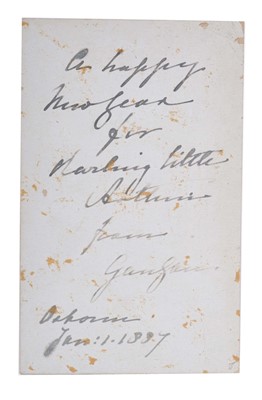 A happy
New Year
for
Darling little
from
Gangan.
Osborne.
Jan: 1. 1887